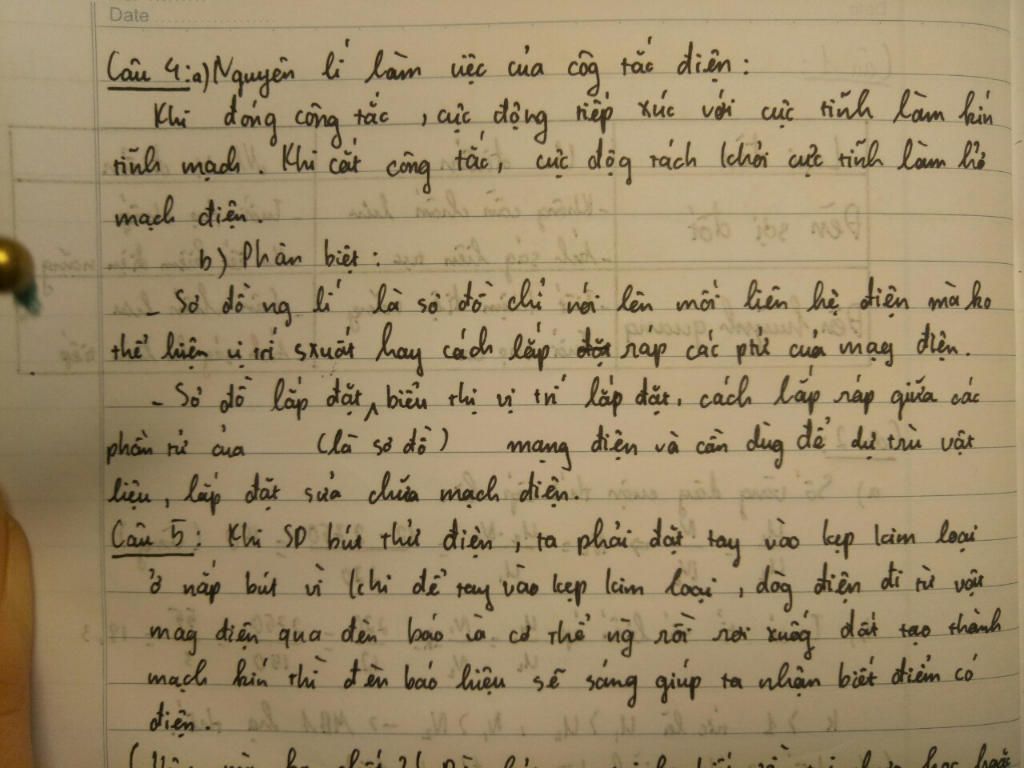 Date
Câu 4: a) Nguyên lí làm việc của côg tắc điện:
Khi đóng công tắc, cực động tiếp xúc với cực tĩnh làm kín
tĩnh mạch. Khi cắt công tắc, cực độg tách khỏi cực tĩnh làm hở
mạch điện.
b) Phân biệt:
- Sơ đồ ng lí là sơ đồ chỉ nói lên mối liên hệ điện mà ko
thể hiện vị trí sxuất hay cách lắp ráp các ptử của mạg điện.
- Sơ đồ lắp đặt, biểu thị vị trí lắp đặt, cách lắp ráp giữa các
phần tử của (là sơ đồ) mạng điện và cần dùg để dự trù vật
liệu, lắp đặt sửa chữa mạch điện.
Câu 5: Khi SD bút thử điện, ta phải đặt tay vào kẹp kim loại
ở nắp bút vì khi để tay vào kẹp kim loại, dòg điện đi từ vật
mag điện qua đèn báo và cơ thể ng rồi rơi xuốg đất tạo thành
mạch kín thì đèn báo hiệu sẽ sáng giúp ta nhận biết điểm có
điện.